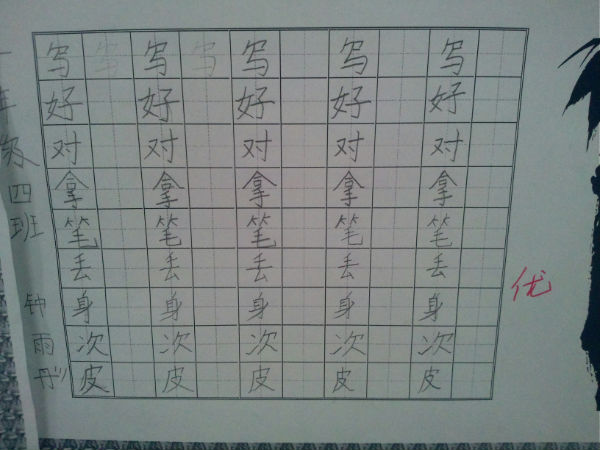 一年级四班 钟雨彤
写 写 写 写 写 写 写
好 好 好 好 好
对 对 对 对 对
拿 拿 拿 拿 拿
笔 笔 笔 笔 笔
丢 丢 丢 丢 丢
身 身 身 身 身
次 次 次 次 次
皮 皮 皮 皮 皮
优